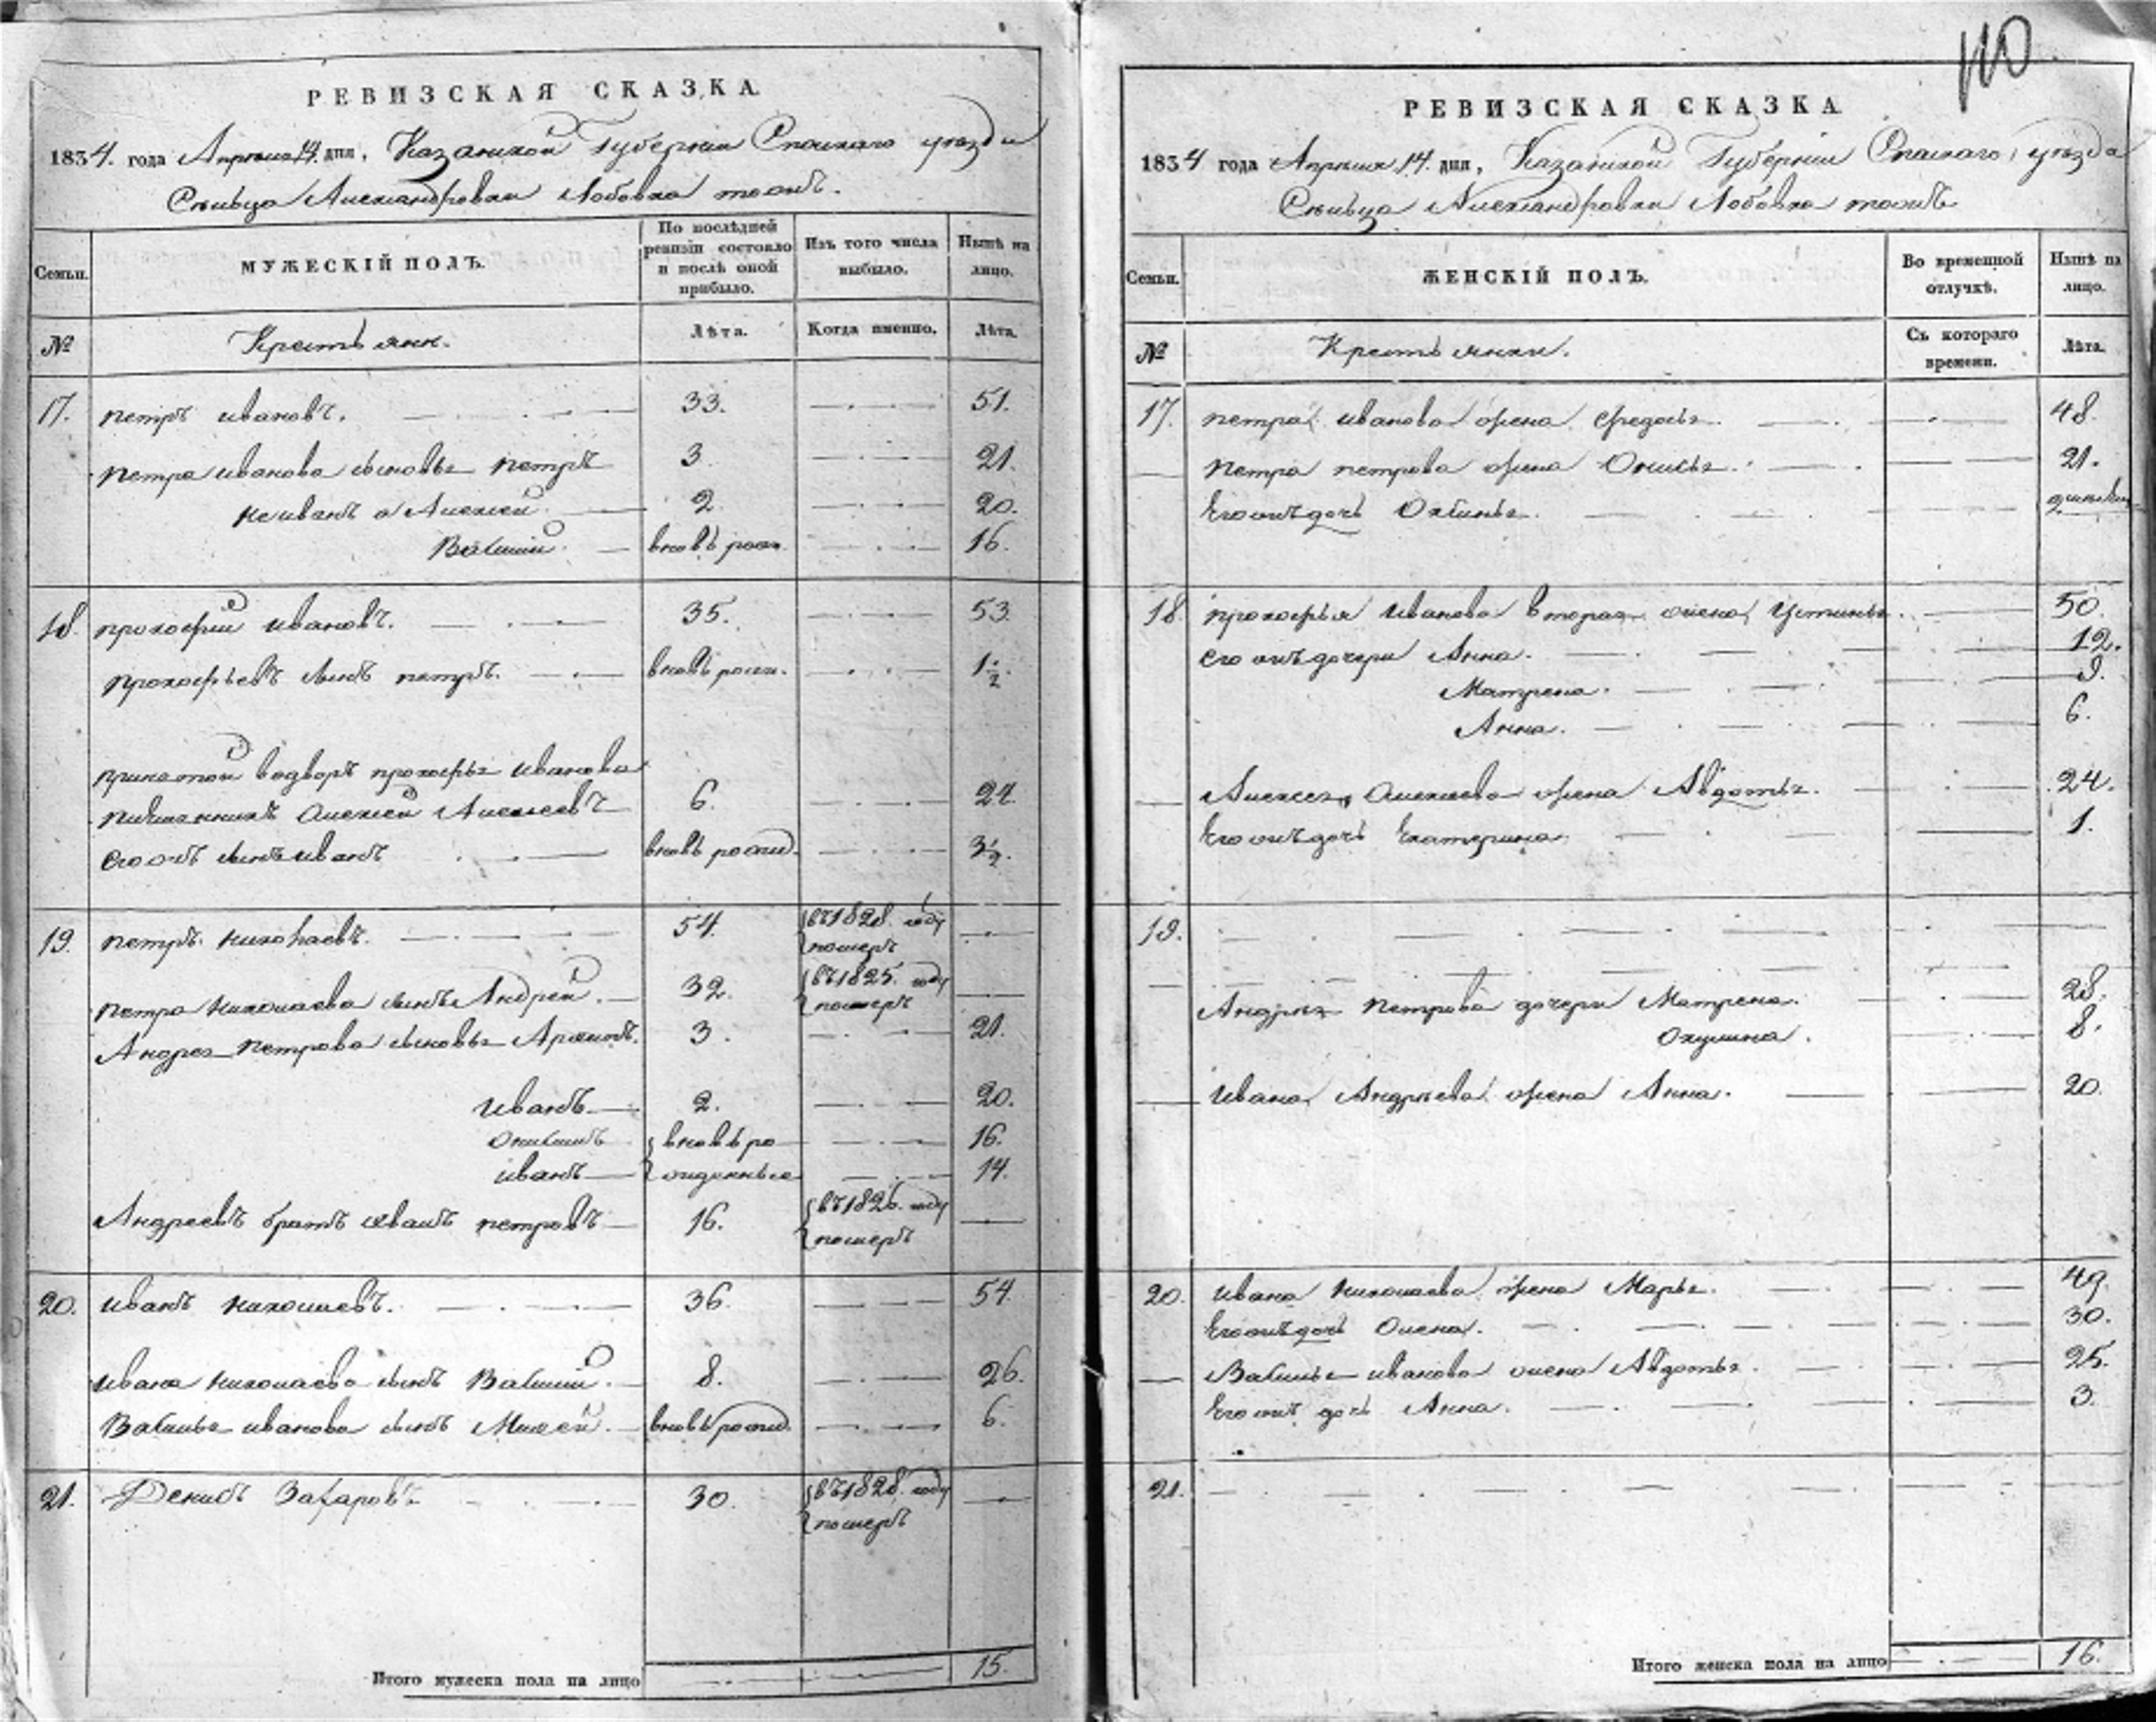 РЕВИЗСКАЯ СКАЗКА.
1834. года Апреля 14. дня, Казанской Губернiи Спаскаго уезда
Сельца Александровки Лобовка тожъ.
Семьи.
МУЖЕСКІЙ ПОЛЪ.
По послѣдней ревизіи состояло и послѣ оной прибыло.
Изъ того числа выбыло.
Нынѣ на лицо.
№
Крестьяни.
Лѣта.
Когда именно.
Лѣта.
17. петръ ивановъ. 33. 51.
петра иванова сыновья петръ 3. 21.
Алексей 2. 20.
Василий. вновь рож. 16.
18. прокофий ивановъ. 35. 53.
прокофьевъ сынъ петръ. вновь рожд. 1 1/2.
принятой водворъ прокофья иванова
племянникъ Алексей Алексеевъ 6. 24.
его сынъ иванъ вновь рожд. 3 1/2.
19. петръ николаевъ. 54. въ 1828. году
померъ
петра николаева сынъ Андрей. 32. въ 1825. году
померъ
Андрея петрова сыновья 3. 21.
иванъ 2. 20.
вновь ро 16.
иванъ жденные 14.
Андреевъ братъ иванъ петровъ 16. въ 1826. году
померъ
20. иванъ николаевъ. 36. 54.
ивана николаева сынъ Василий. 8. 26.
Василья иванова сынъ вновь рожд. 6.
21. Денисъ Захаровъ 30. въ 1828. году
померъ
Итого мужеска пола на лицо 15.
110
РЕВИЗСКАЯ СКАЗКА.
1834 года Апреля 14. дня, Казанской Губернiи Спаскаго уезда
Сельца Александровки Лобовка тожъ
Семьи.
ЖЕНСКІЙ ПОЛЪ.
Во временной отлучкѣ.
Нынѣ на лицо.
№
Крестьянки.
Съ котораго времени.
Лѣта.
17. петра иванова жена Федосья. 48.
петра петрова жена Онисья. 21.
Его дочь
18. прокофья иванова вторая жена Устинья. 50.
его дочери Анна. 12.
Матрена. 9.
Анна. 6.
Алексея Алексеева жена Авдотья. 24.
Его дочь Екатерина. 1.
19.
Андрея петрова дочери Матрена. 28.
Окулина. 8.
ивана Андреева жена Анна. 20.
20. ивана николаева жена Марья. 49.
Его дочь Олена. 30.
Василья иванова жена Авдотья. 25.
Его дочь Анна. 3.
21.
Итого женска пола на лицо 16.